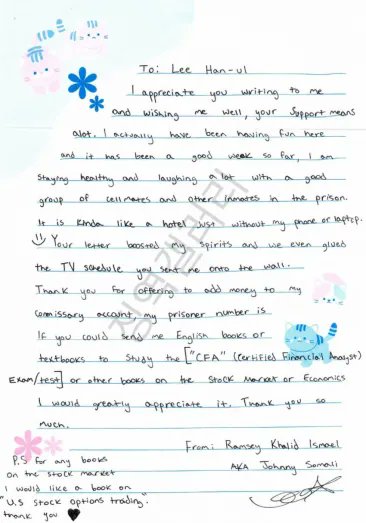 To: Lee Han-ul
I appreciate you writing to me
and wishing me well, your support means
alot. I actually have been having fun here
and it has been a good week so far, I am
staying healthy and laughing a lot with a good
group of cellmates and other inmates in the prison.
It is kinda like a hotel just without my phone or laptop.
Your letter boosted my spirits and we even glued
the TV schedule you sent me onto the wall.
Thank you for offering to add money to my
commissary account, my prisoner number is
If you could send me English books or
textbooks to study the ["CFA" (Certified Financial Analyst)
Exam/test] or other books on the stock market or Economics
I would greatly appreciate it. Thank you so
much.
From: Ramsey Khalid Ismael
AKA Johnny Somali
P.S for any books
on the stock market
I would like a book on
"U.S stock options trading."
thank you